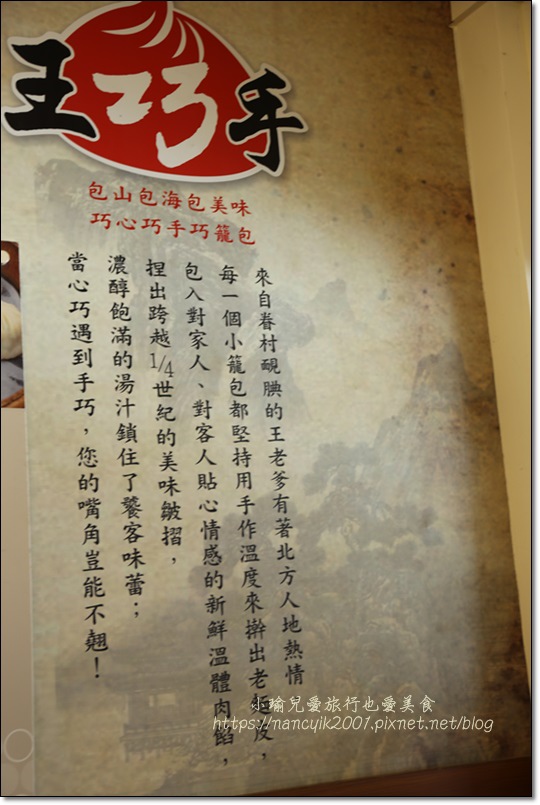 王巧手
包山包海包美味
巧心巧手巧籠包
來自眷村靦腆的王老爹有著北方人地熱情
每一個小籠包都堅持用手作溫度來擀出老麵皮，
包入對家人、對客人貼心情感的新鮮溫體肉餡，
捏出跨越1/4世紀的美味皺摺，
濃醇飽滿的湯汁鎖住了饕客味蕾；
當心巧遇到手巧，您的嘴角豈能不翹！
小瑜兒愛旅行也愛美食
https://nancyik2001.pixnet.net/blog